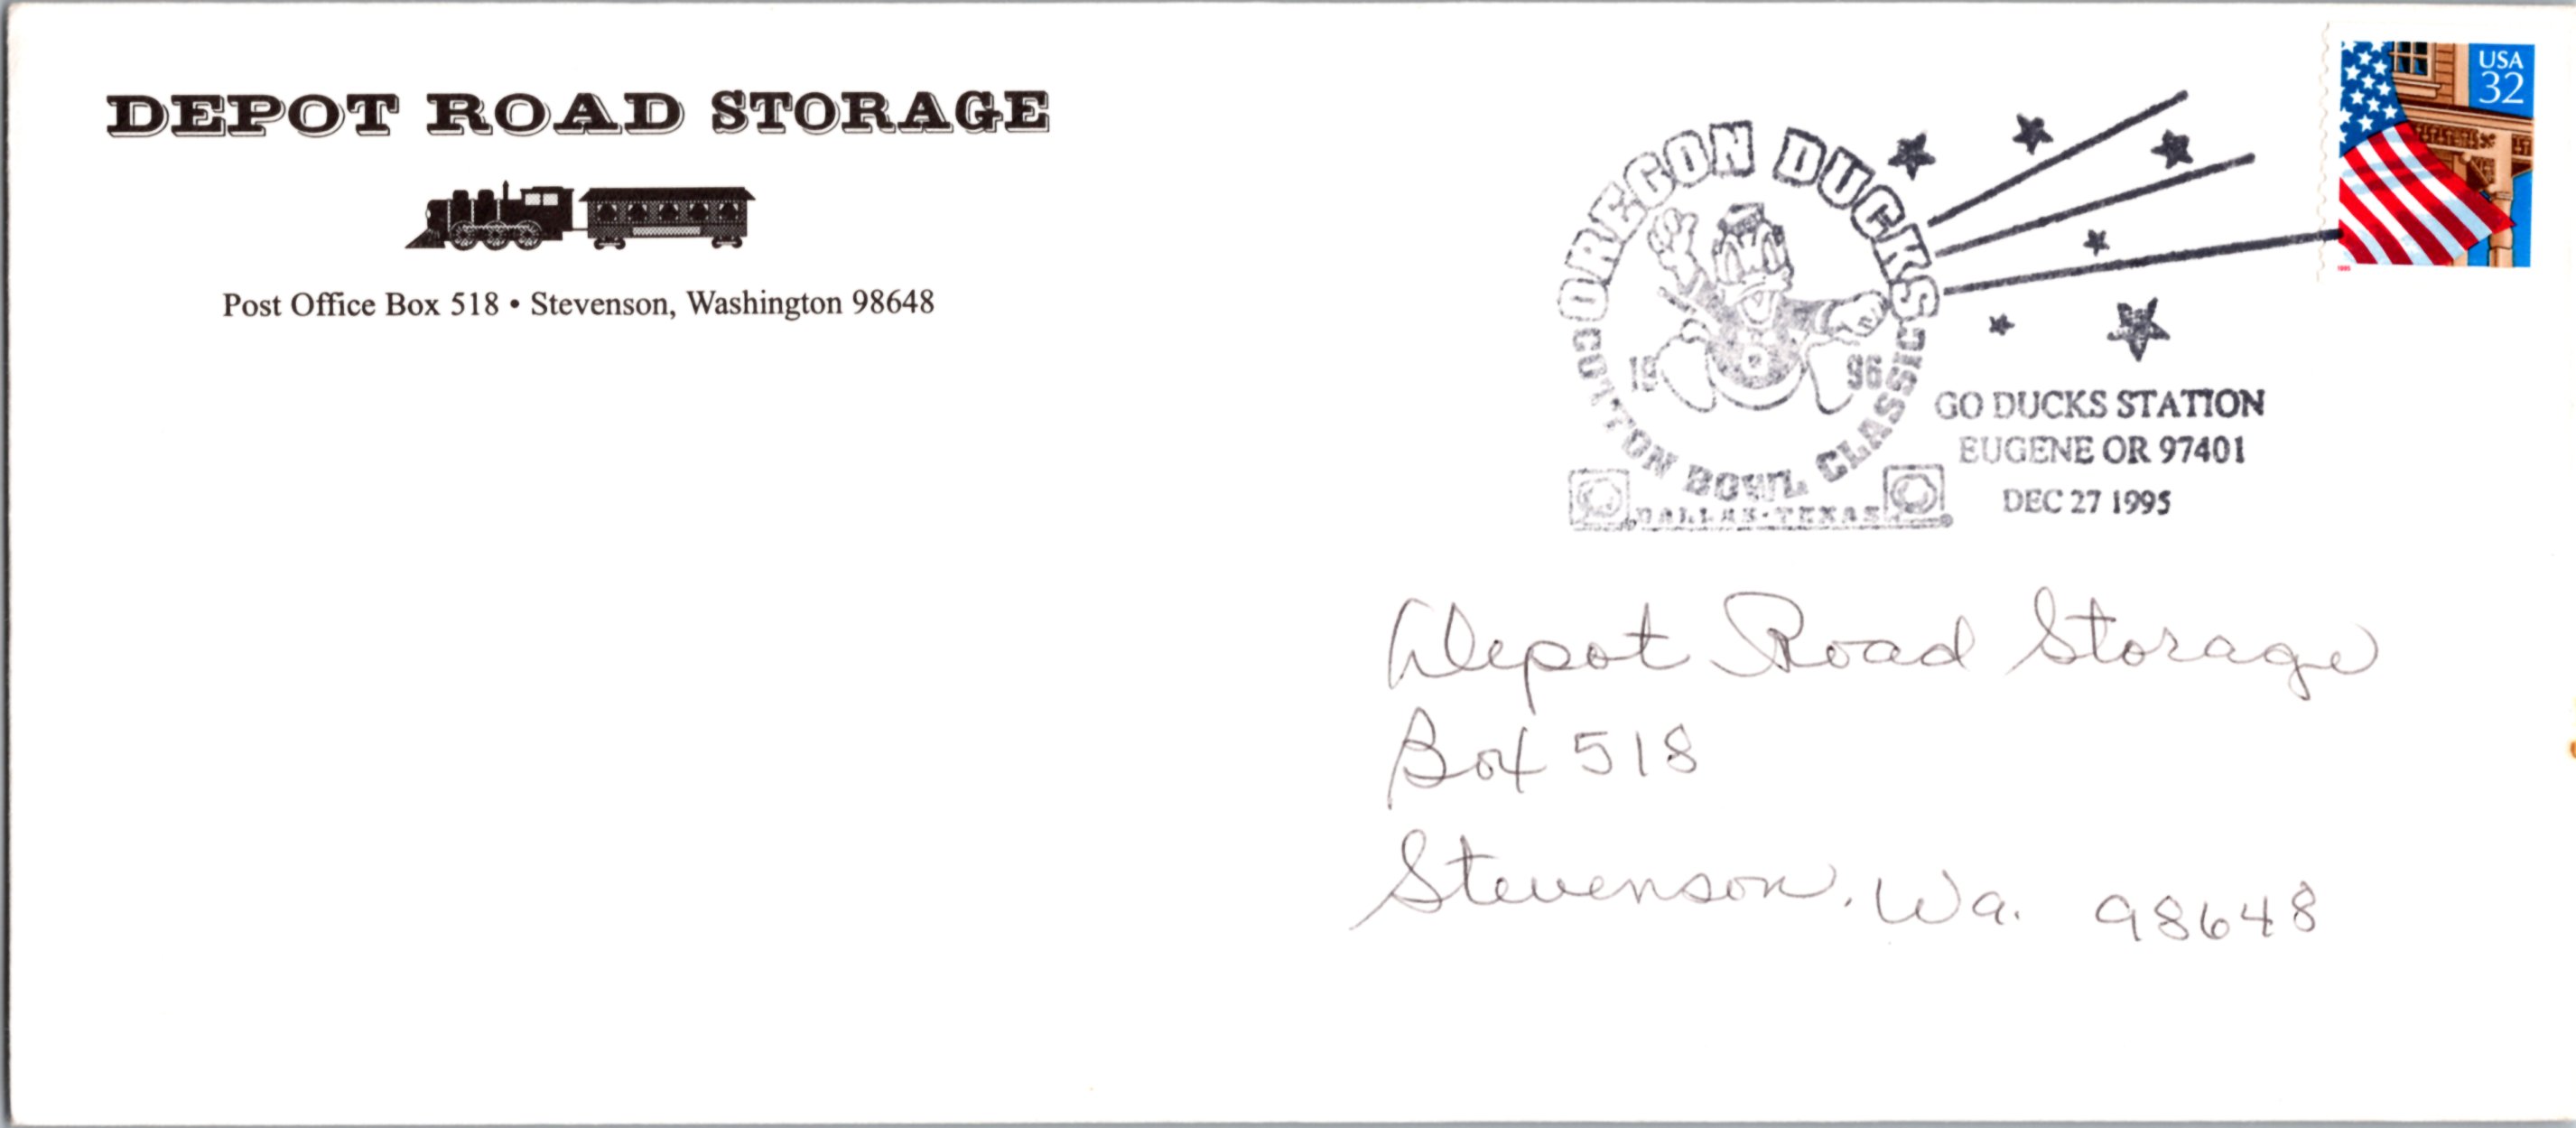 DEPOT ROAD STORAGE
Post Office Box 518 • Stevenson, Washington 98648
USA
32
1995
OREGON DUCKS
19 96
COTTON BOWL CLASSIC
DALLAS • TEXAS
GO DUCKS STATION
EUGENE OR 97401
DEC 27 1995
Depot Road Storage
Box 518
Stevenson, Wa. 98648